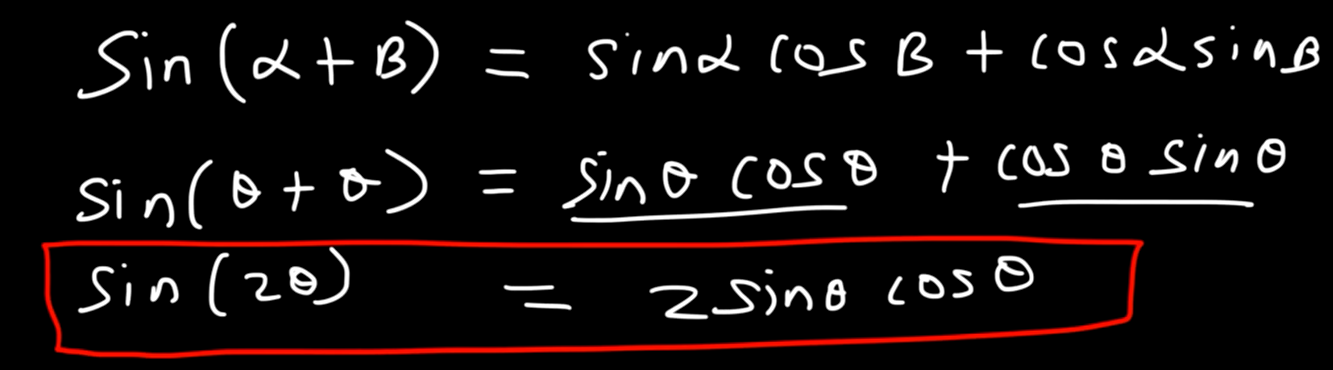 Sin(α+B) = sinα cos B + cosα sin B
sin(θ+θ) = sinθ cosθ + cos θ sinθ
Sin(2θ) = 2sinθ cosθ